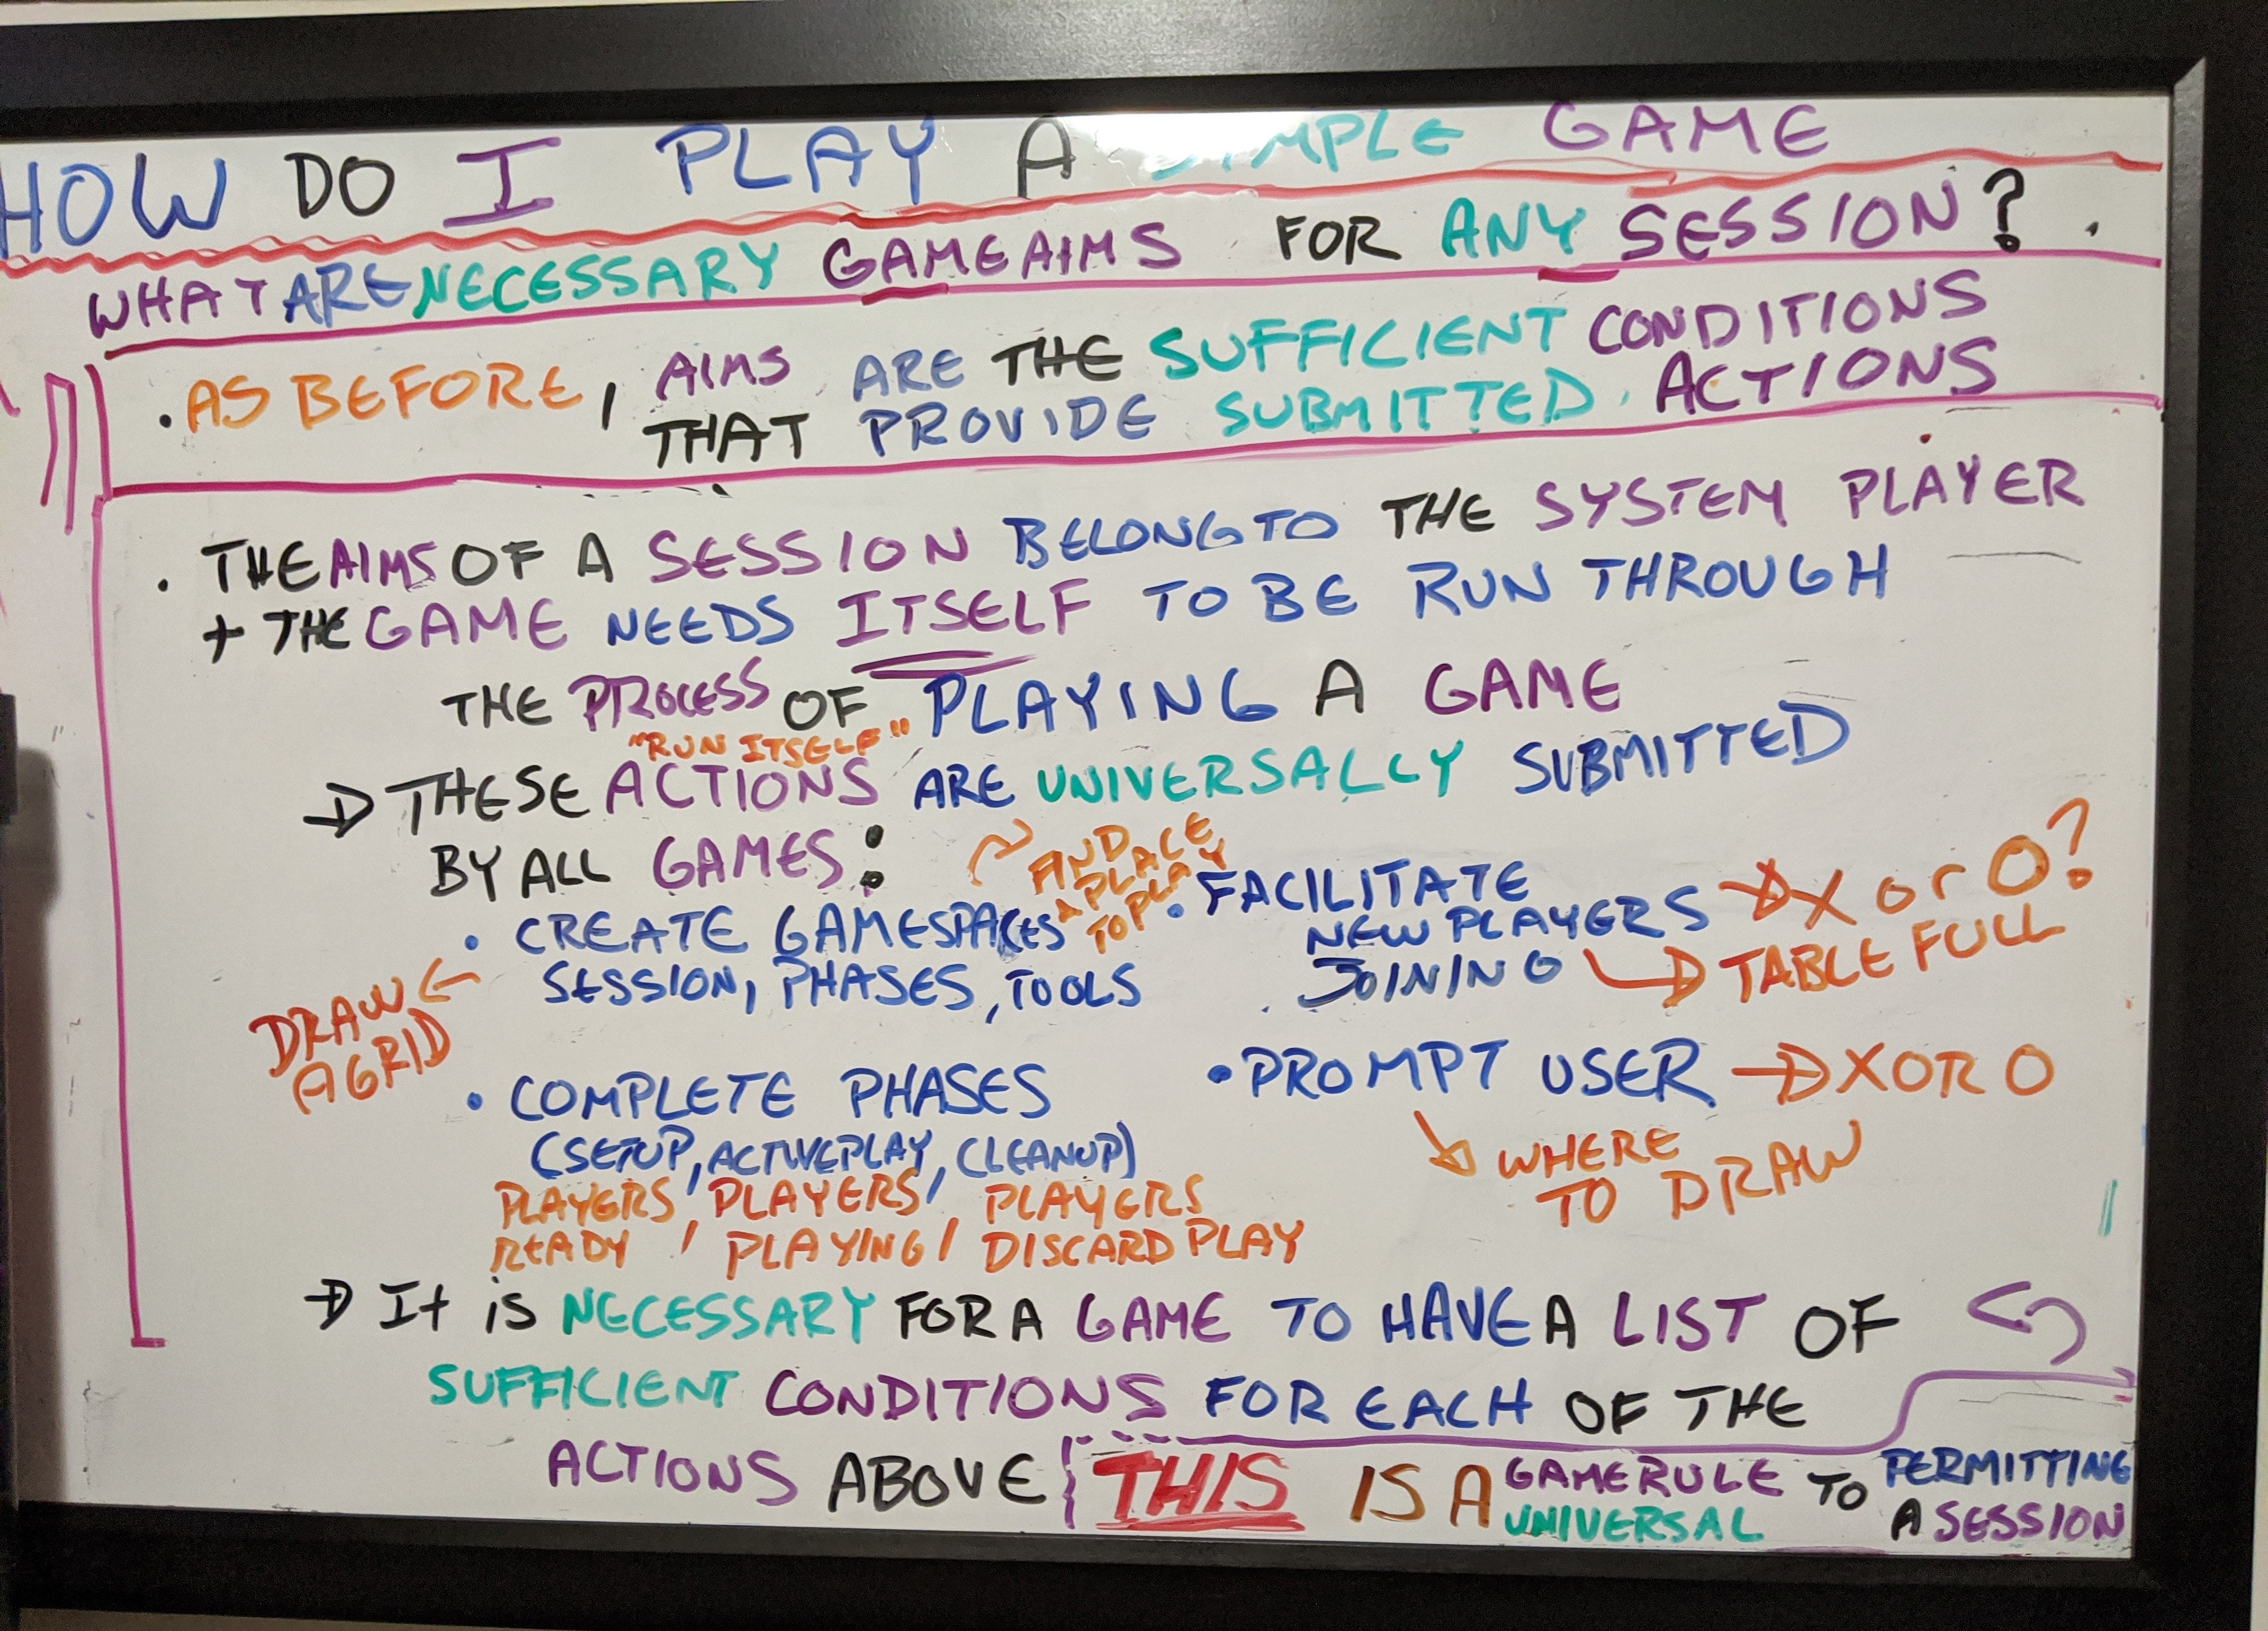 HOW DO I PLAY A SIMPLE GAME
WHAT ARE NECESSARY GAME AIMS FOR ANY SESSION?
• AS BEFORE, AIMS ARE THE SUFFICIENT CONDITIONS
THAT PROVIDE SUBMITTED ACTIONS
• THE AIMS OF A SESSION BELONG TO THE SYSTEM PLAYER
+ THE GAME NEEDS ITSELF TO BE RUN THROUGH
THE PROCESS OF PLAYING A GAME
"RUN ITSELF"
→ THESE ACTIONS ARE UNIVERSALLY SUBMITTED
BY ALL GAMES:
• CREATE GAMESPACES
SESSION, PHASES, TOOLS
A PLACE
TO PLAY
DRAW
A GRID
• FACILITATE
NEW PLAYERS
JOINING
→ X or O?
→ TABLE FULL
• COMPLETE PHASES
(SETUP, ACTIVEPLAY, CLEANUP)
PLAYERS / PLAYERS / PLAYERS
READY / PLAYING / DISCARD PLAY
• PROMPT USER → X OR O
WHERE
TO DRAW
→ It is NECESSARY FOR A GAME TO HAVE A LIST OF
SUFFICIENT CONDITIONS FOR EACH OF THE
ACTIONS ABOVE
THIS IS A GAMERULE TO PERMITTING
UNIVERSAL A SESSION